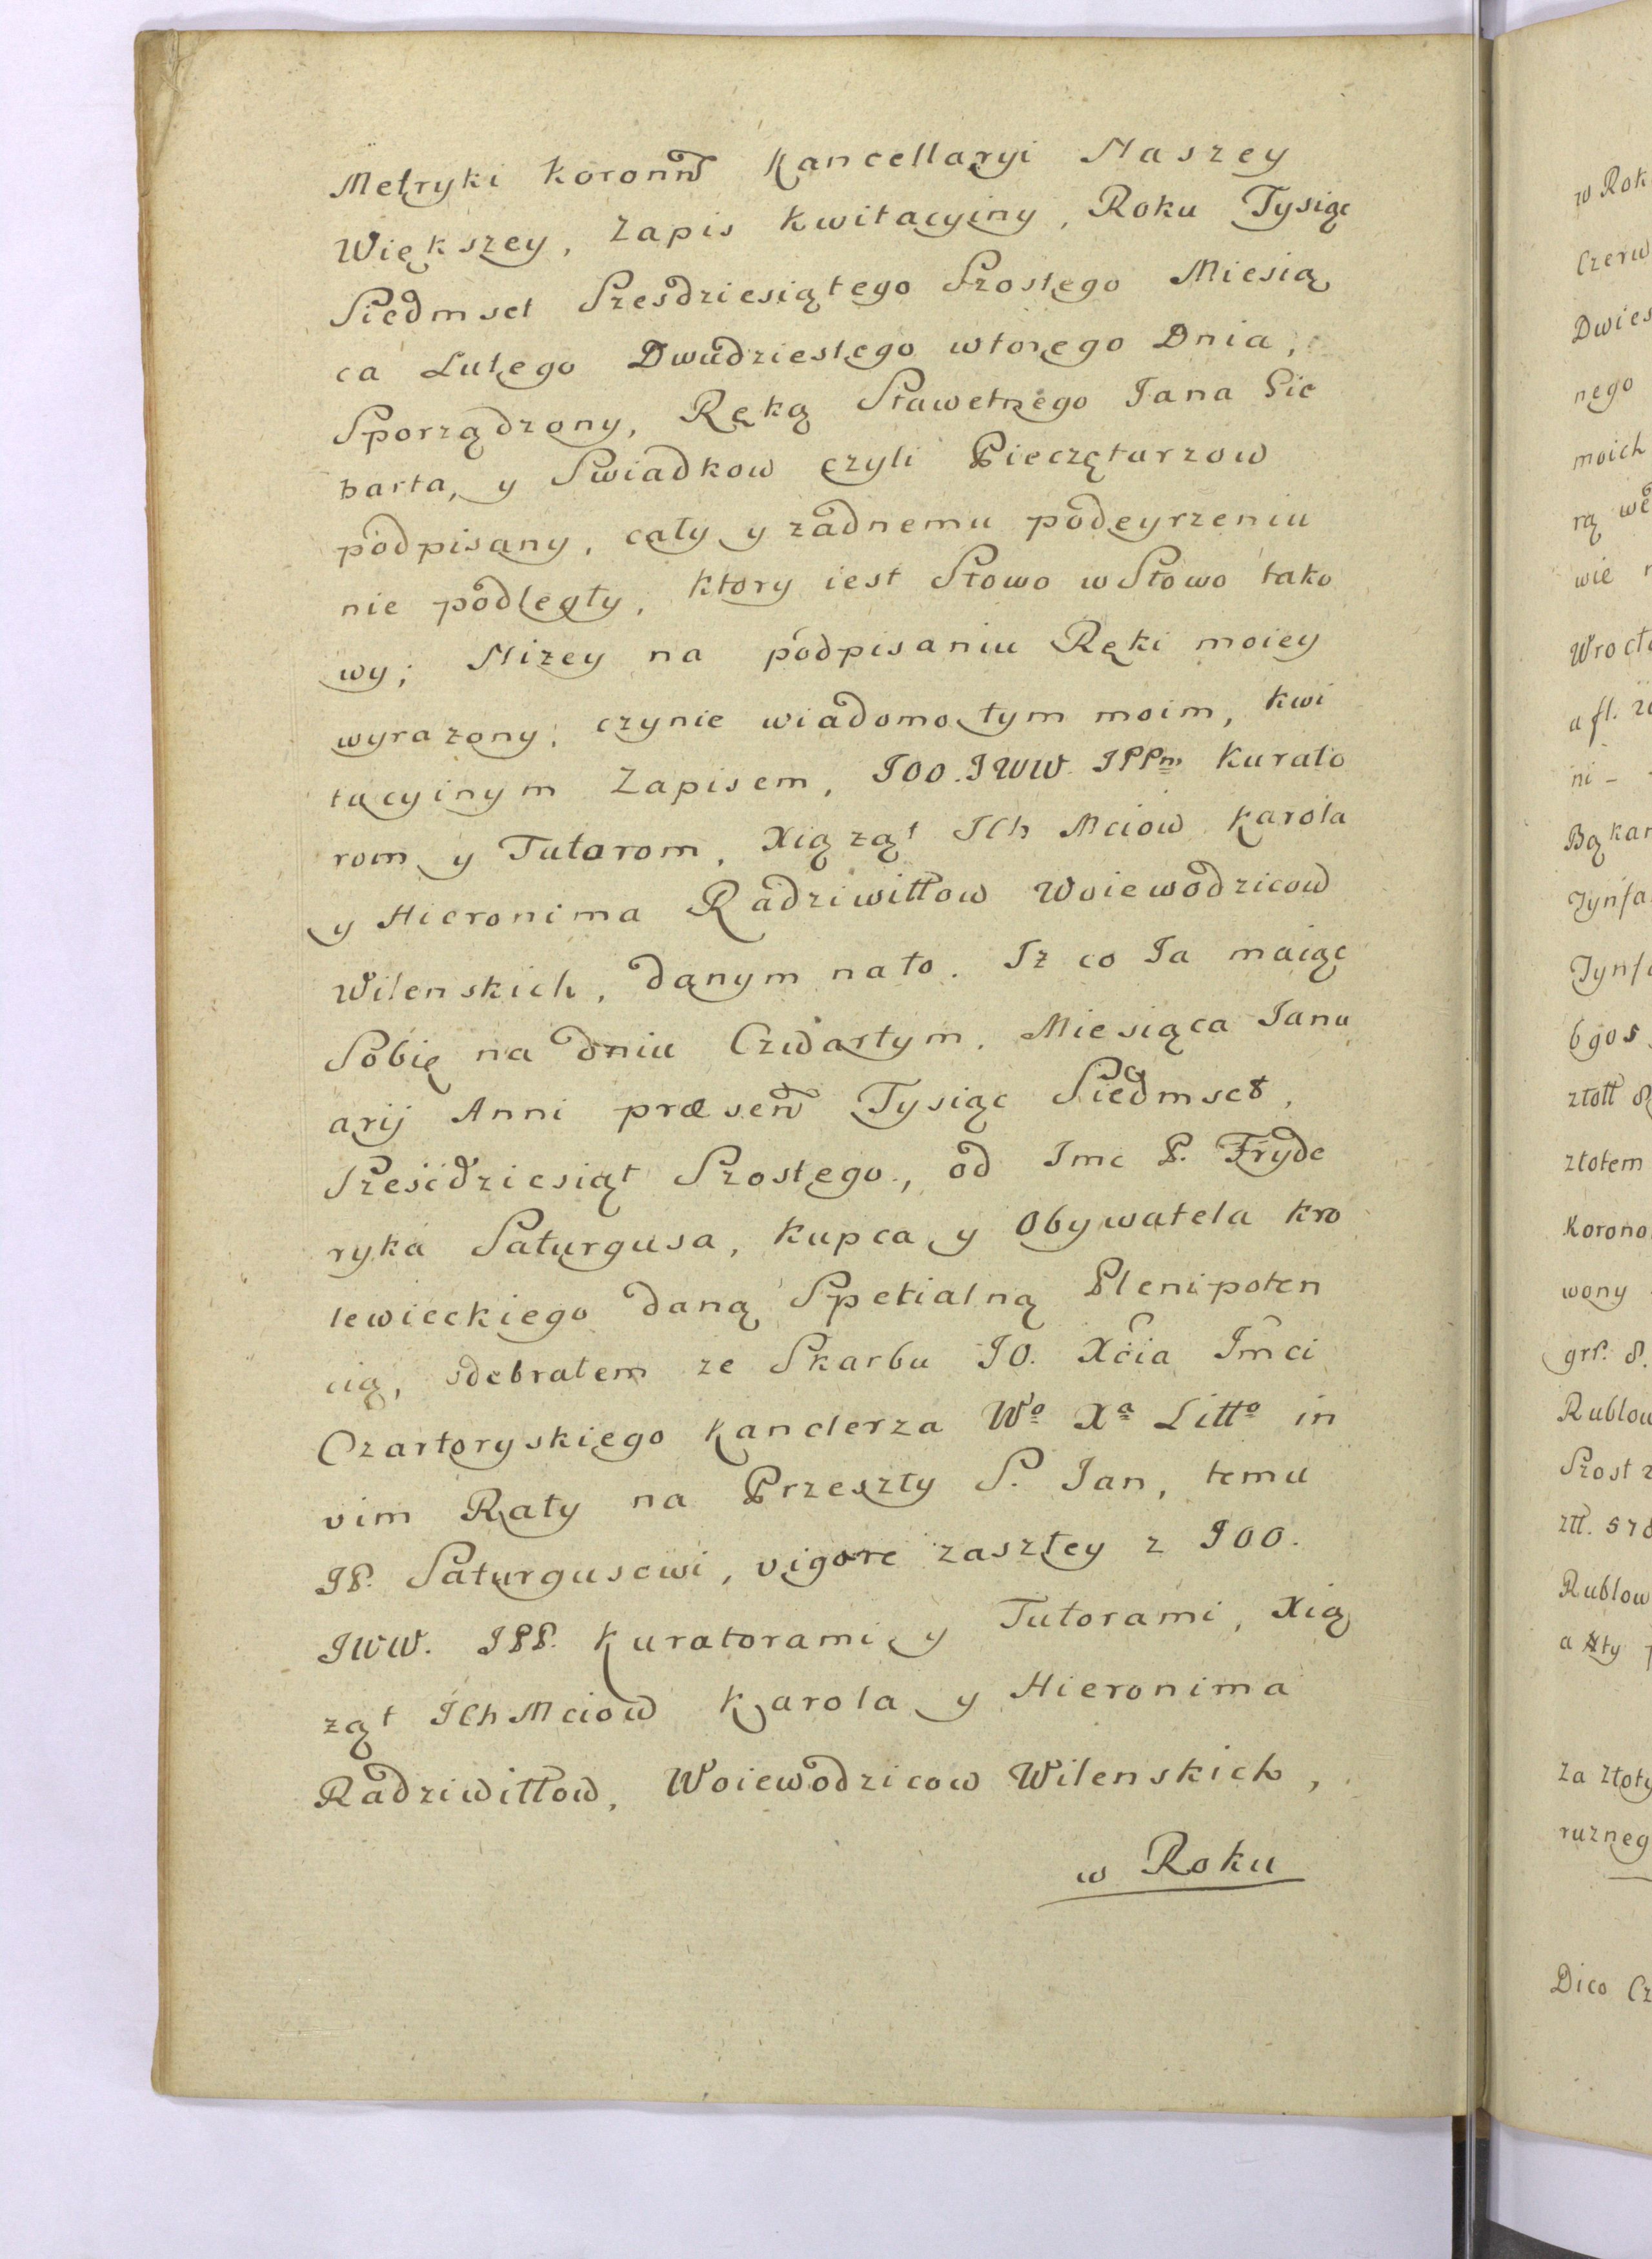 Metryki Koronn̄ Kancellaryi Naszey
Większey, Zapis Kwitacyiny, Roku Tysiąc
Siedmset Szesdziesiątego Szostego Miesią
ca Lutego Dwudziestego wtorego Dnia,
Sporządzony, Ręką Sławetnego Iana Sie
barta, y Swiadkow czyli Pieczętarzow
podpisany, cały y żadnemu podeyrzeniu
nie podległy, ktory iest Słowo w Słowo tako
wy; Niżey na podpisaniu Ręki moiey
wyrażony, czynie wiadomo tym moim, kwi
tacyinym Zapisem, JOO. JWW. JPPm Kurato
rom y Tutorom, Xiążąt Ich Mciow Karola
y Hieronima Radziwiłłow Woiewodzicow
Wilenskich, danym na to. Iż co Ia maiąc
Sobie na dniu Czwartym, Miesiąca Ianu
arij Anni præsen̄ Tysiąc Siedmset,
Sześćdziesiąt Szostego, od Imc P. Fryde
ryka Saturgusa, Kupca y Obywatela kro
lewieckiego daną Spetialną Plenipoten
cią, odebrałem ze Skarbu JO. Xcia Imci
Czartoryskiego Kanclerza Wo Xa Litto in
vim Raty na Przeszły S. Ian, temu
JP. Saturgusowi, vigore zaszłey z JOO.
JWW. JPP. Kuratorami y Tutorami, Xią
żąt Ich Mciow Karola y Hieronima
Radziwiłłow, Woiewodzicow Wilenskich,
w Roku
w Rok
Czerw
Dwies
nego
moich
rą
wie
Wrocł
a fl.
ni -
Bąkar
Tynfa
Tynf
bgos
złott
złotem
Korono
wony
grp. 8.
Rublow
Szost
złł.
Rublow
a
Za złoty
ruzneg
Dico Cz